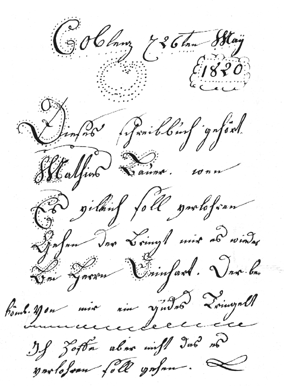 Coblenz d 26ten May
1820
Dieses schreibbuch gehört
Mathies Bauer. wen
Es gileich soll verlohren
Gehen der Bringt mir es wieder
Bei Herrn Reinhart. Der be
kömt. von mir ein gudes Tringelt
Ich Hoffe aber nicht das es
verlohren soll gehen.